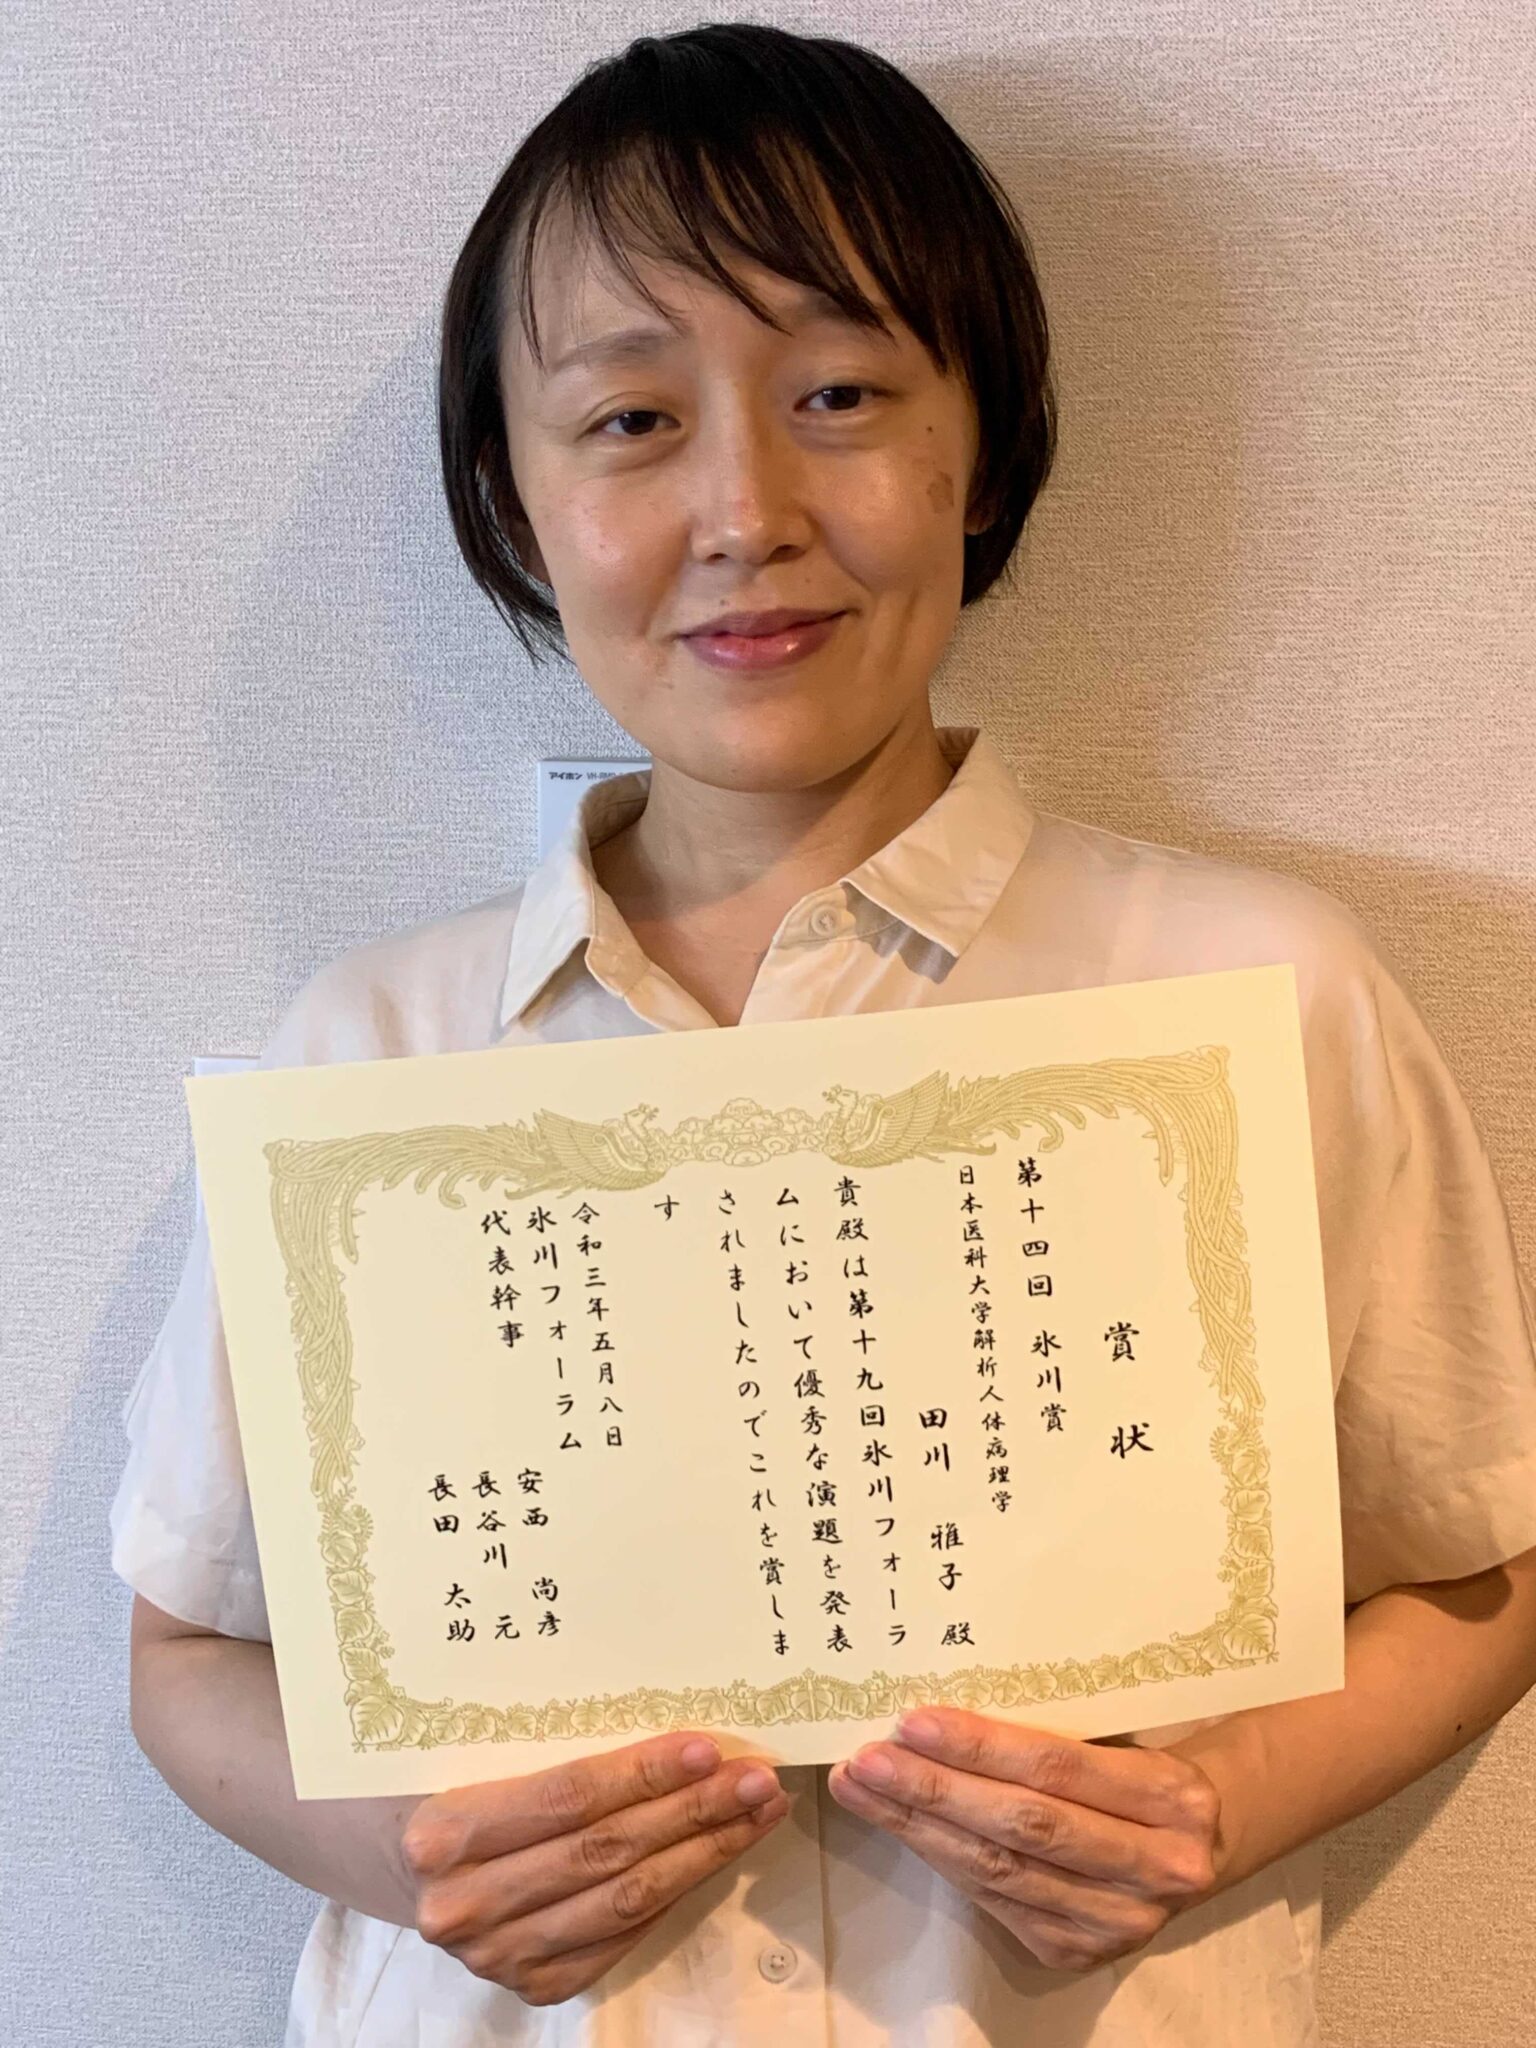 賞状
第十四回 氷川賞
日本医科大学解析人体病理学
田川 雅子 殿
貴殿は第十九回氷川フォーラ
ムにおいて優秀な演題を発表
されましたのでこれを賞しま
す
令和三年五月八日
氷川フォーラム
代表幹事
安西 尚彦
長谷川 元
長田 太助
アイホン